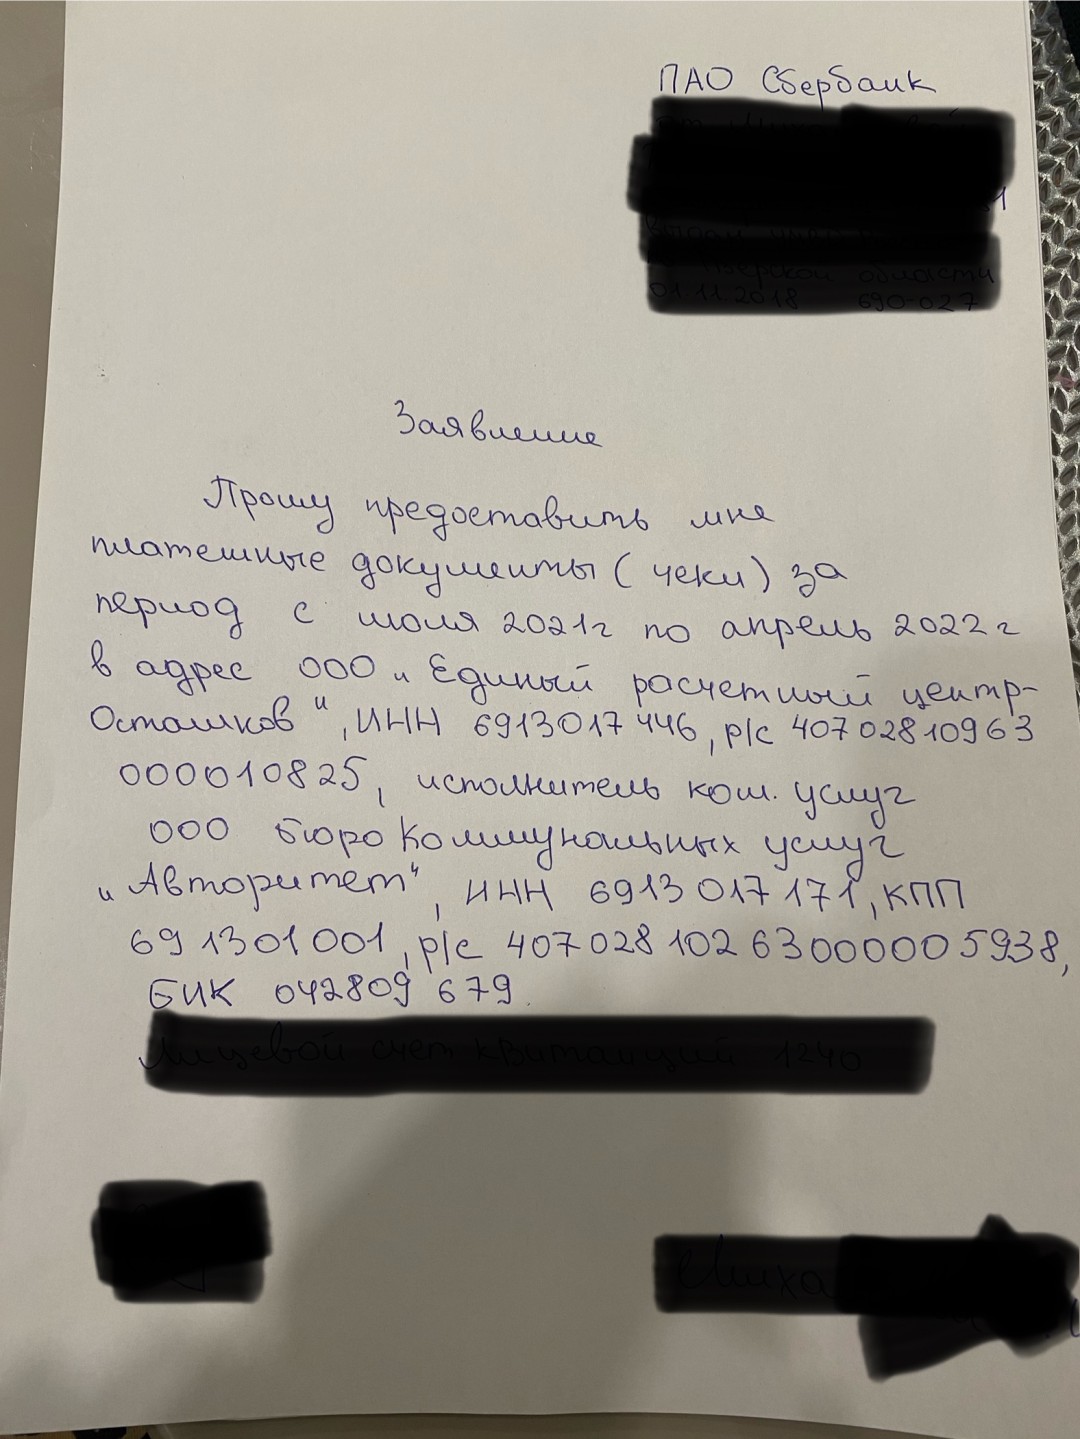 ПАО Сбербанк
Заявление
Прошу предоставить мне
платежные документы (чеки) за
период с июля 2021г по апрель 2022г
в адрес ООО „Единый расчетный центр-
Осташков", ИНН 6913017446, р/с 40702810963
000010825, исполнитель ком. услуг
ООО Бюро Коммунальных услуг
„Авторитет", ИНН 6913017171, КПП
691301001, р/с 40702810263000005938,
БИК 042809679.